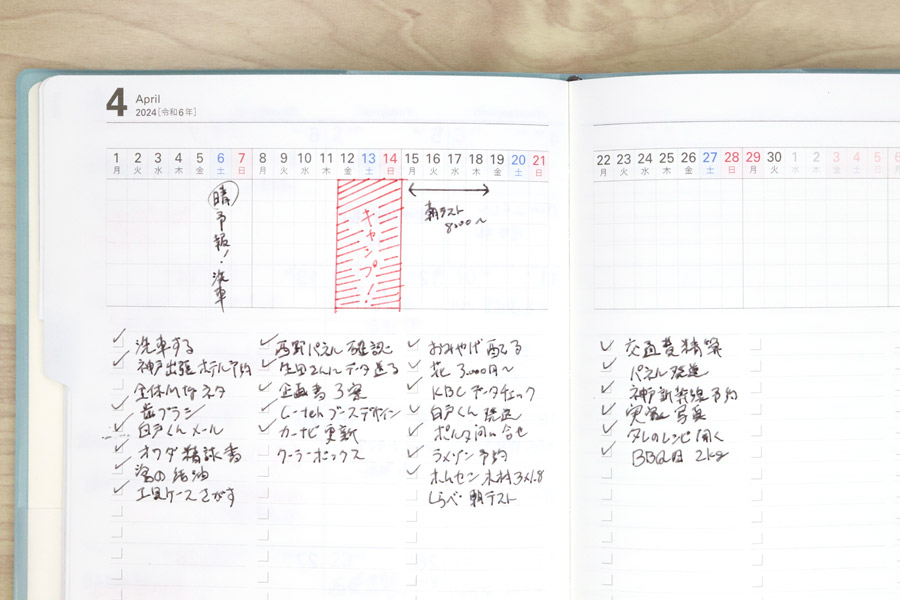 4 April
2024[令和6年]
1 2 3 4 5 6 7 8 9 10 11 12 13 14 15 16 17 18 19 20 21
月 火 水 木 金 土 日 月 火 水 木 金 土 日 月 火 水 木 金 土 日
22 23 24 25 26 27 28 29 30 1 2 3 4 5 6
月 火 水 木 金 土 日 月 火 水 木 金 土 日 月
晴予報!洗車
キャンプ!
朝テスト
8:00〜
洗車する
神戸出張ホテル予約
全体Mtgネタ
歯ブラシ
白戸くんメール
オクダ 精詠書
給油
工具ケースさがす
西野パネル確認
生田さんへデータ送る
企画書 3案
ブースデザイン
カーナビ更新
クーラーボックス
おみやげ配る
花 3,000円〜
KBCデータチェック
白戸くん 発送
問い合せ
ラメゾン予約
ホムセン 木材3×1.8
しらべ 朝テスト
交通費精算
パネル発送
神戸新幹線予約
写真
タレのレシピ聞く
BBQ肉 2kg